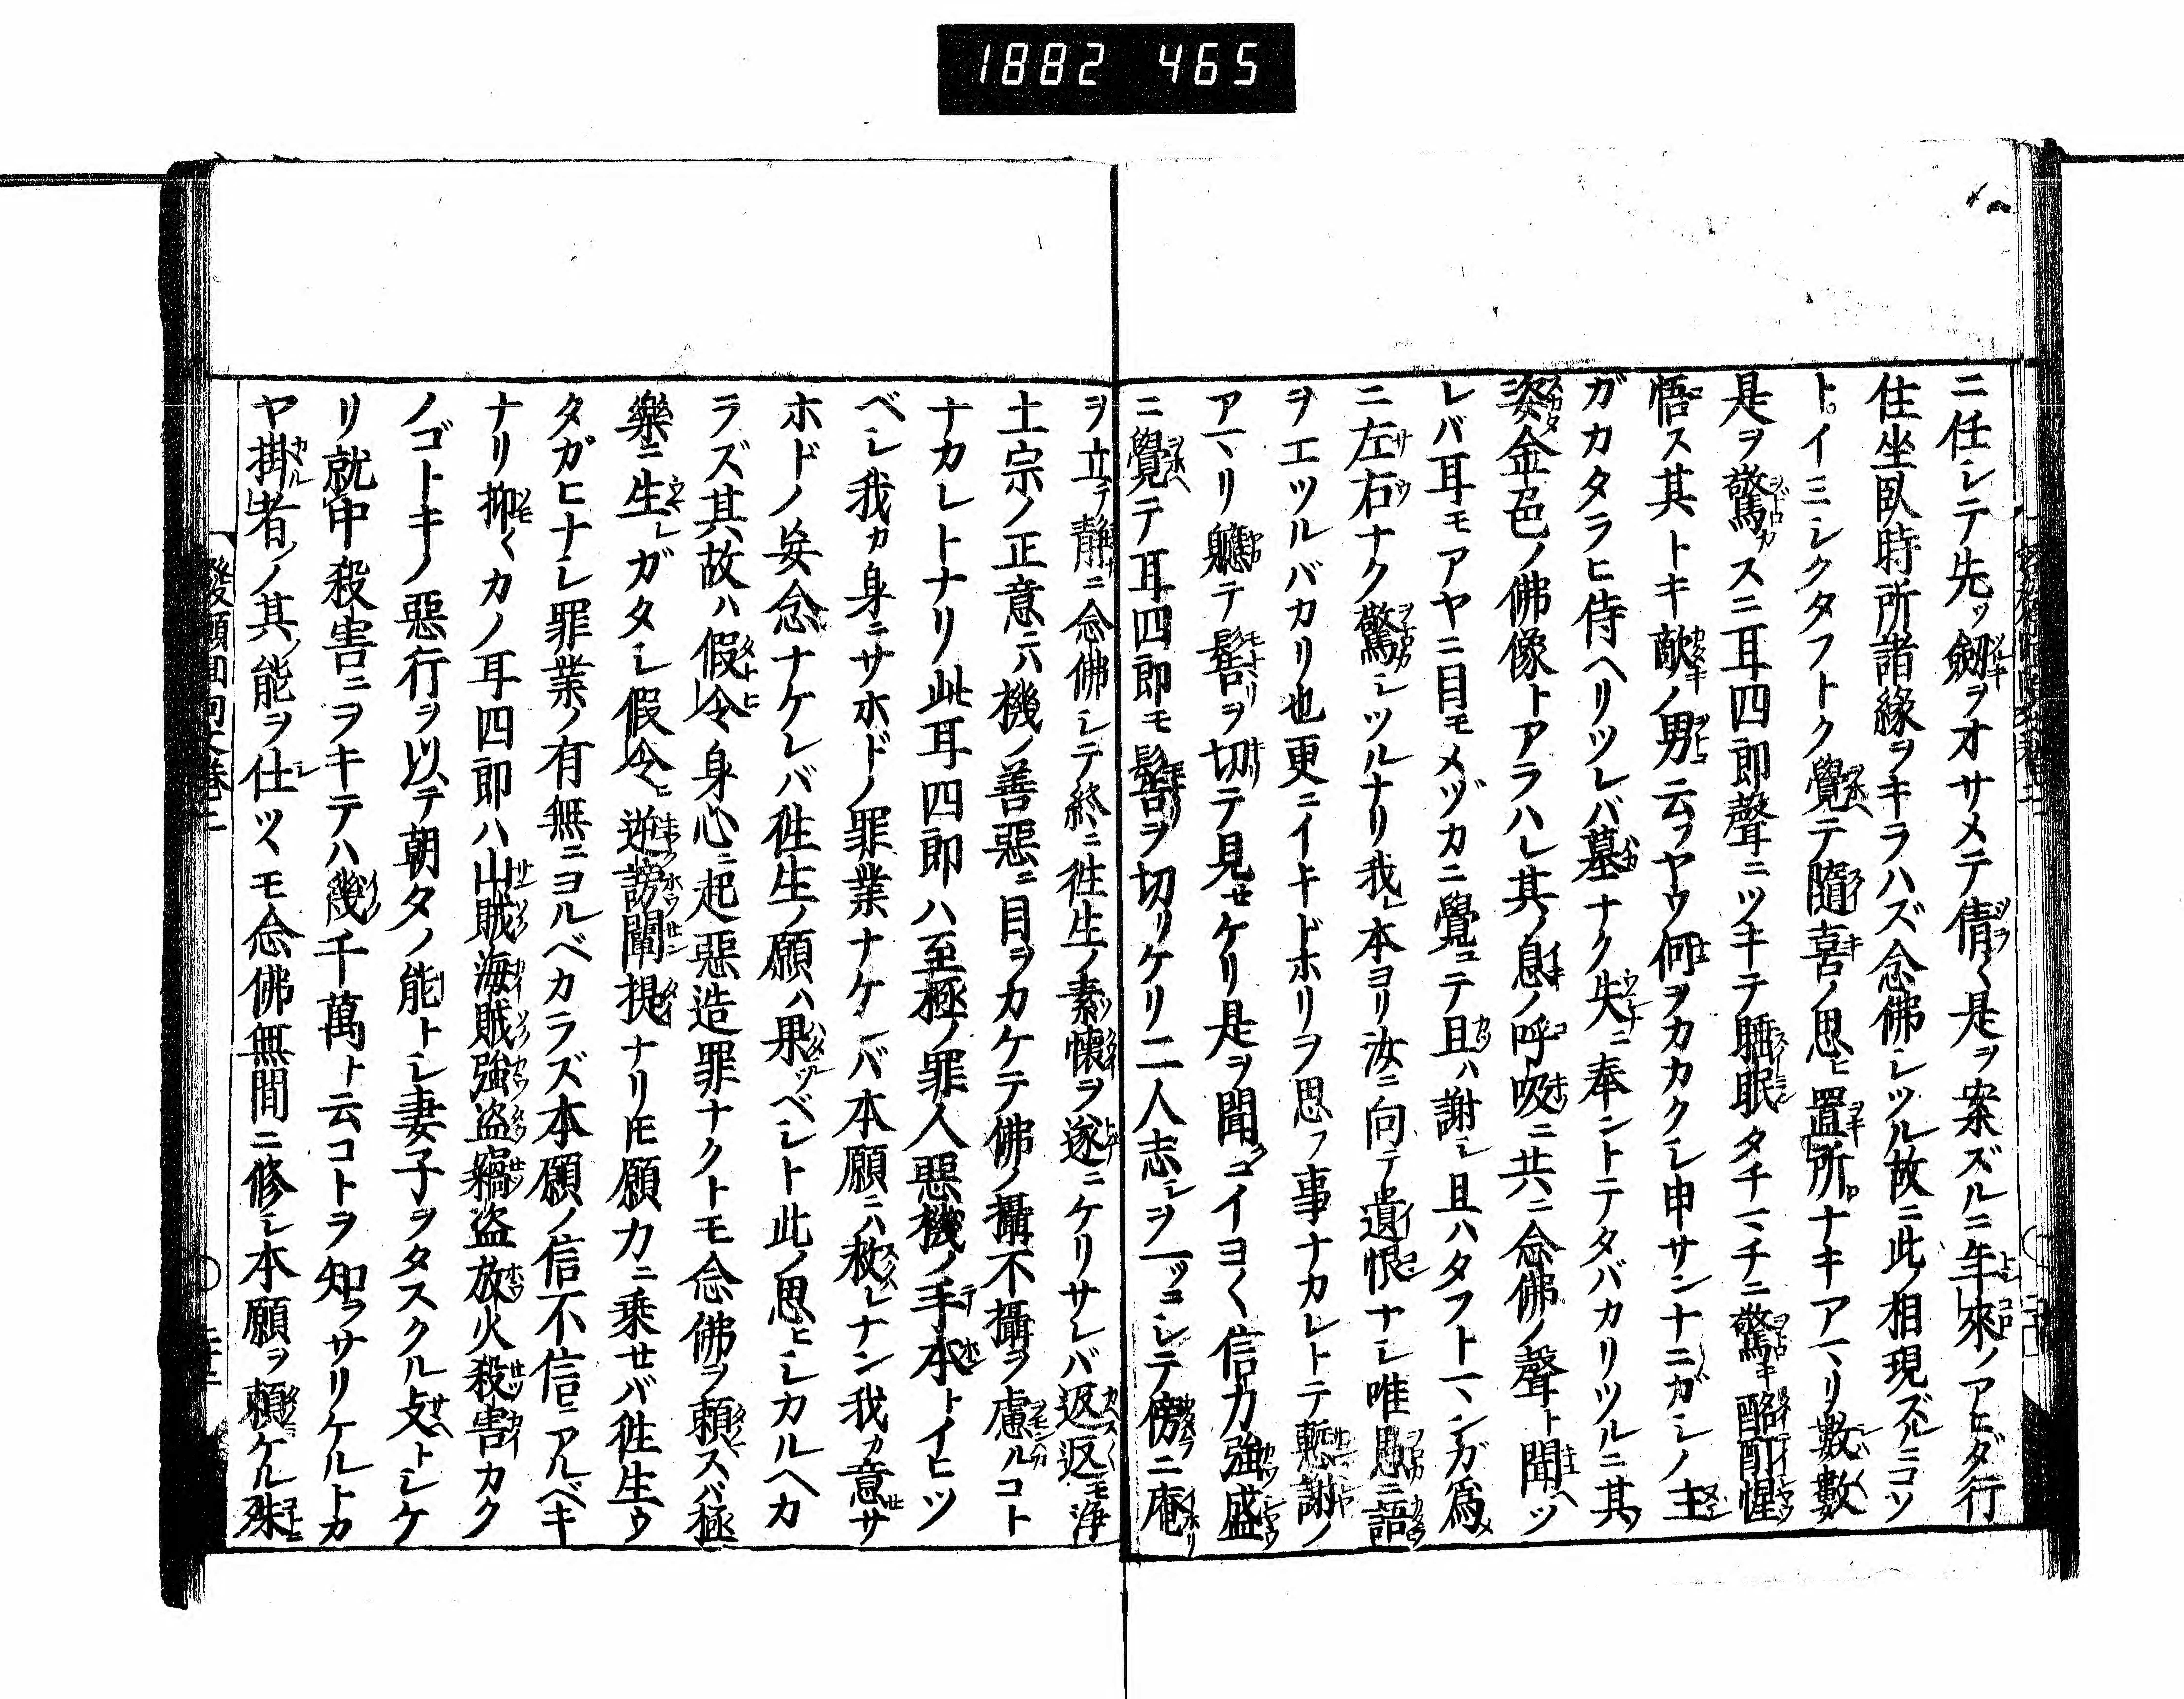 1882 465
ニ任シテ先ッ劔ヲオサメテ倩〱是ヲ案ズルニ年來ノアヒダ行
住坐臥時所諸緣ヲキラハズ念佛シツル故ニ此ノ相現ズルニコソ
トイミシクタフトク覺テ隨喜ノ思ヒ置所ナキアマリ數數
是ヲ驚カスニ耳四郎聲ニツキテ睡眠タチマチニ驚キ酩酊惺
悟ス其トキ敵ノ男云フヤウ何ヲカカクシ申サンナニガシノ主
ガカタラヒ侍ヘリツレバ墓ナク失ニ奉ントテタバカリツルニ其ノ
姿金色ノ佛像トアラハレ其ノ息ノ呼吸ニ共ニ念佛ノ聲ト聞ヘツ
レバ耳モアヤニ目モメヅカニ覺ニテ且ハ謝シ且ハタフトマンガ爲メ
ニ左右ナク驚シツルナリ我レ本ヨリ汝ニ向テ遺恨ナシ唯愚ニ語
ヲエツルバカリ也更ニイキドホリヲ思フ事ナカレトテ慙謝ノ
アマリ軈テ髻ヲ切テ見せケリ是ヲ聞ニイヨ〱信力強盛
ニ覺テ耳四郎モ髻ヲ切リケリ二人志シヲ一ッニシテ傍ニ庵
ヲ立テ靜ニ念佛シテ終ニ徃生ノ素懷ヲ遂ニケリサレバ返返モ淨
土宗ノ正意ニハ機ノ善惡ニ目ヲカケテ佛ノ攝不攝ヲ慮ルコト
ナカレトナリ此耳四郎ハ至極ノ罪人惡機ノ手本トイヒツ
ベシ我カ身ニサホドノ罪業ナケレバ本願ニハ救レナン我カ意サ
ホドノ妄念ナケレバ徃生ノ願ハ果ツベシト此ノ思ヒシカルヘカ
ラズ其故ハ假令身心ニ起惡造罪ナクトモ念佛ヲ賴スバ極
樂ニ生レガタシ假令ヒ逆謗闡提ナリ𪜈願力ニ乗せバ徃生ウ
タガヒナシ罪業ノ有無ニヨルベカラズ本願ノ信不信ニアルベキ
ナリ抑〱カノ耳四郎ハ山賊海賊強盗竊盗放火殺害カク
ノゴトキノ惡行ヲ以テ朝タノ能トシ妻子ヲタスクル支トシケ
リ就中殺害ニヲキテハ幾千萬ト云コトヲ知ラサリケルトカ
ヤ掛者ノ其ノ能ヲ仕ツヽモ念佛無間ニ修シ本願ヲ賴ケル殊
發願回向文卷二